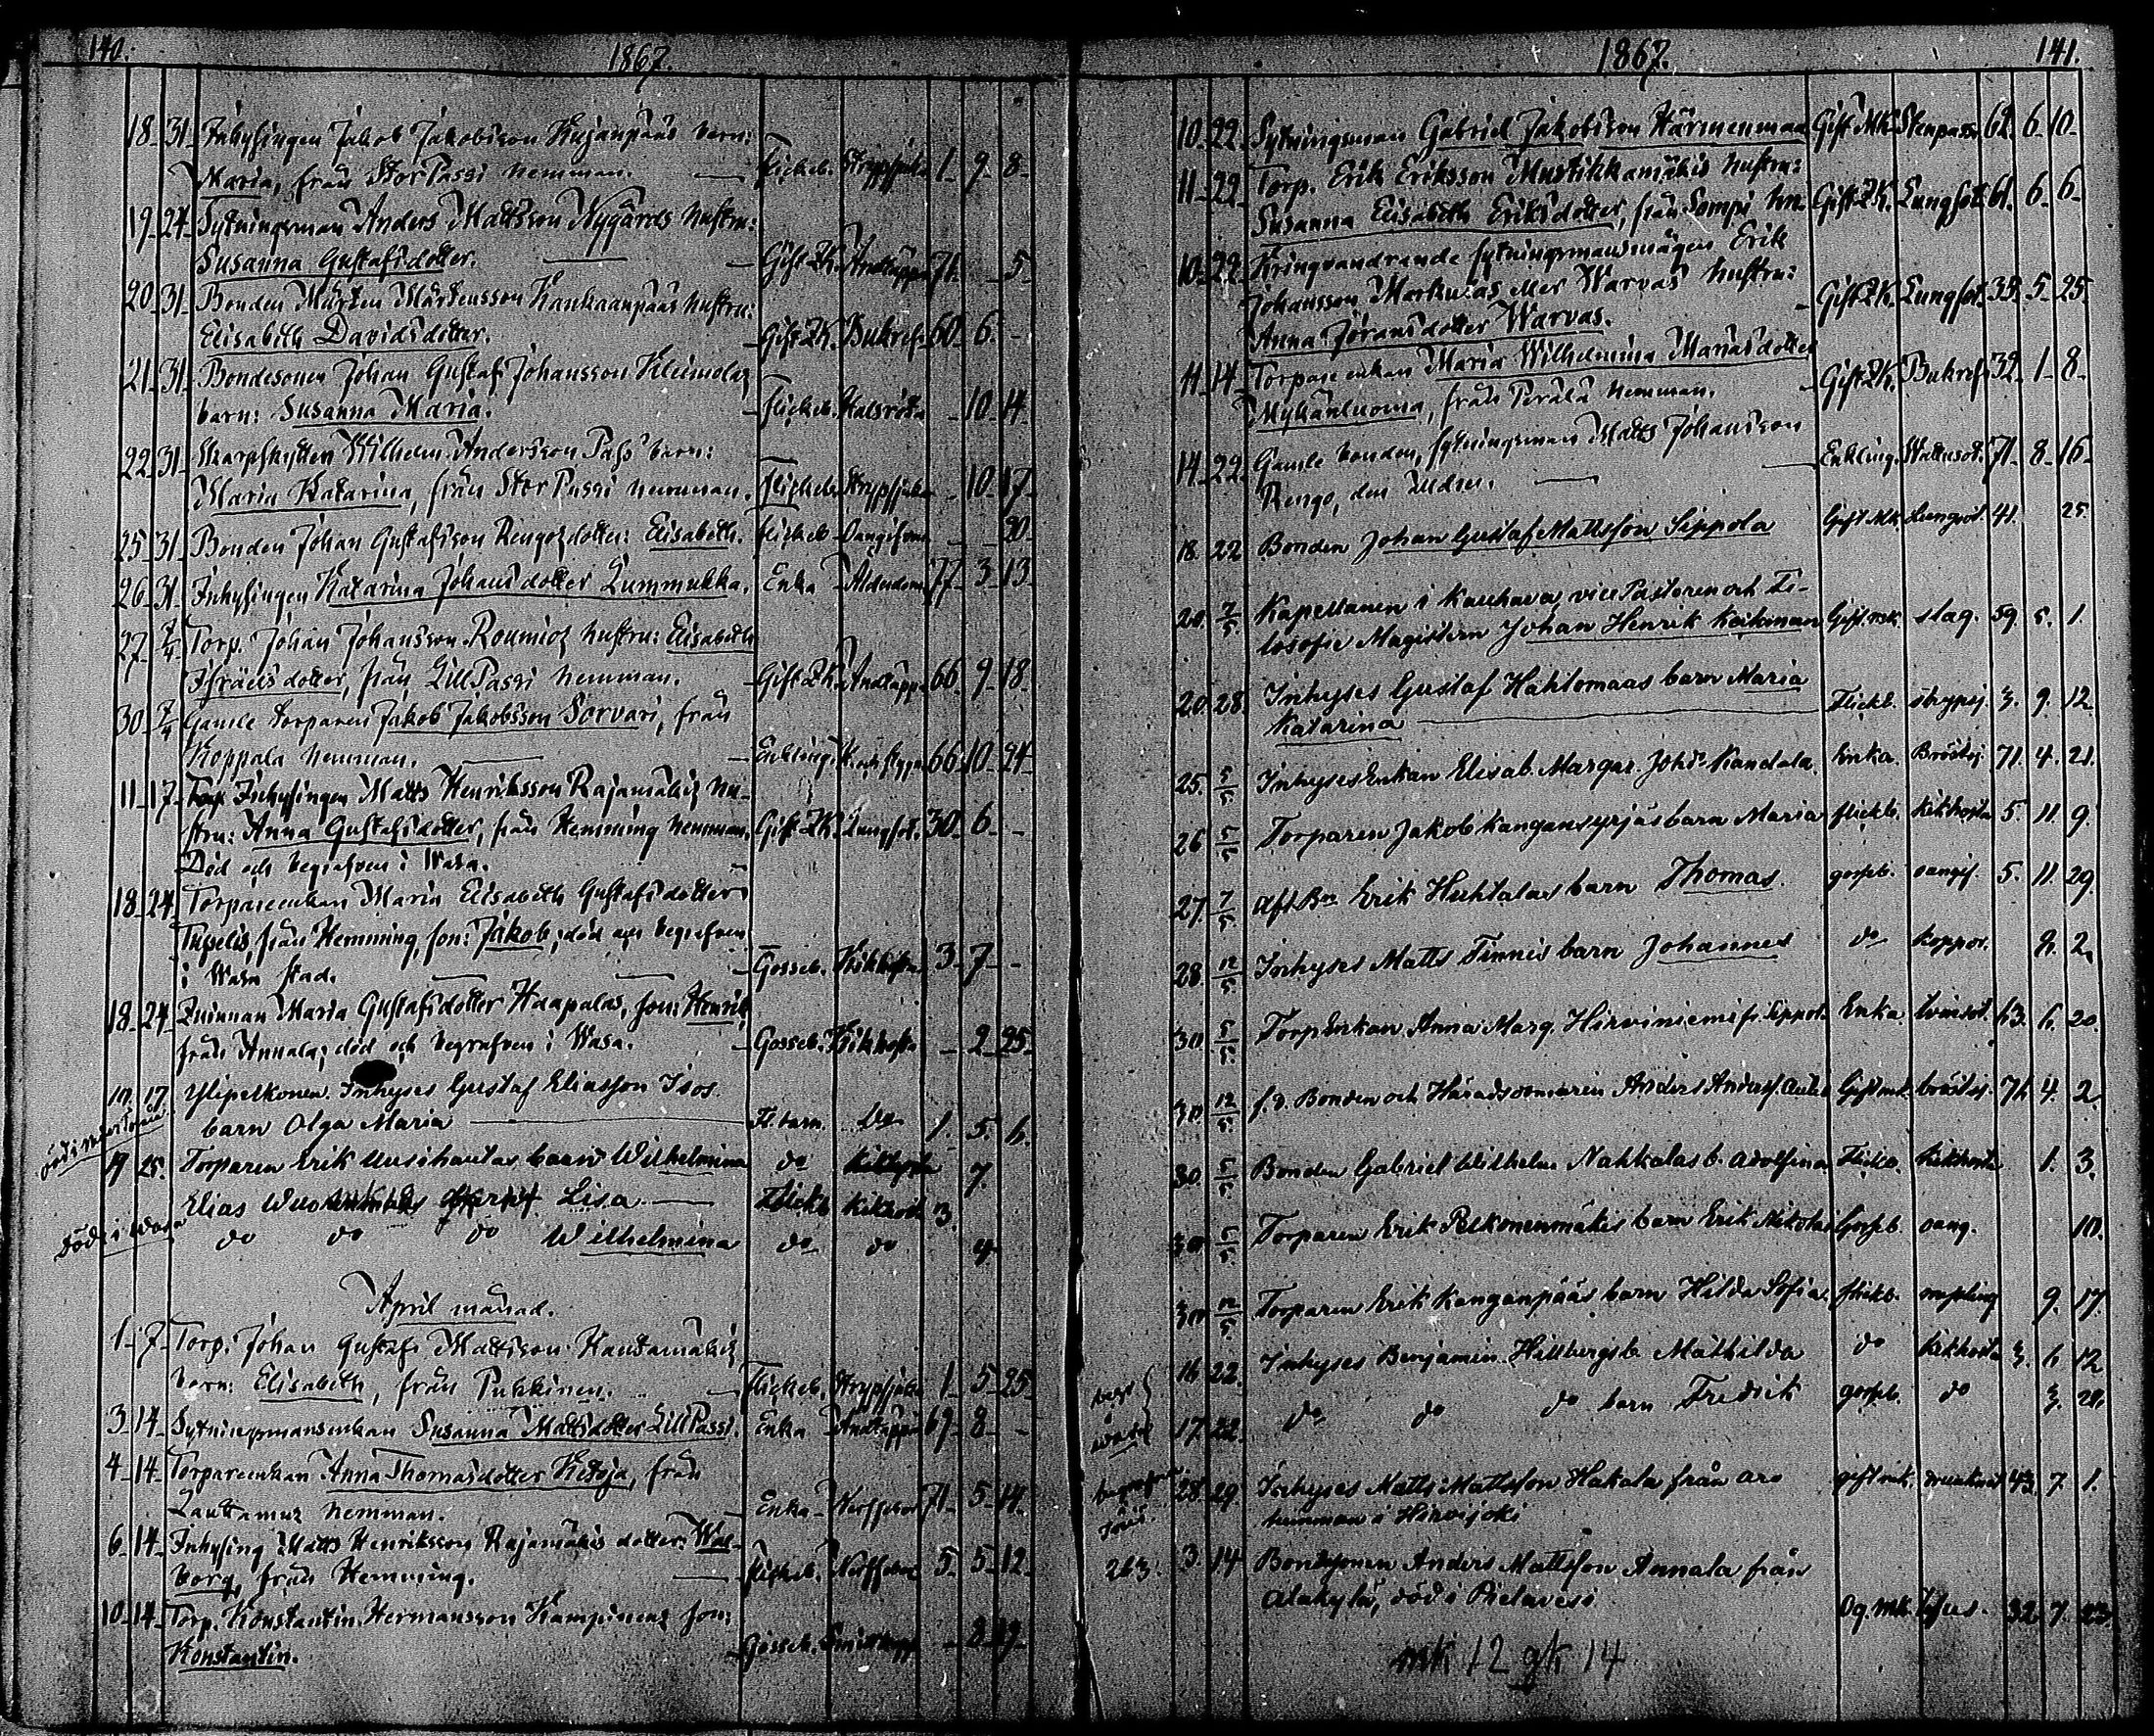 140. 1867.
18 31 Inhysingen Jakob Jakobsson Kujanpääs barn:
Maria, från Stor Passi hemman. Flickeb. Strypsjuka 1 9 8
19 24 Sytningsman Anders Mattsson Nygårds hustru:
Susanna Gustafsdotter. Gift Qk. Andtäppa 71 5
20 31 Bonden Mårten Mårtensson Kaukaanpääs hustru:
Elisabeth Davidsdotter. Gift Qk. Bukref. 60 6
21 31 Bondesonen Johan Gustaf Johansson Kleimolas
barn: Susanna Maria. Flickeb. Halsröta 10 14
22 31 Skarpskytten Wilhelm Andersson Pass barn:
Maria Katarina, från Stor Passi hemman. Flickeb. Strypsjuka 10 17
25 31 Bonden Johan Gustafsson Rengos dotter: Elisabeth. Flickeb. Oangifven 20
26 31 Inhysingen Katarina Johansdotter Lummukka. Enka Ålderdom 77 3 13
27 7/4 Torp. Johan Johansson Roumios hustru: Elisabeth
Isräelsdotter, från LillPassi hemman. Gift Qk. Andtäppa 66 9 18
30 7/4 Gamle torparen Jakob Jakobsson Sorvari, från
Koppala hemman. Enkling 66 10 24
11 17 Inhysingen Matts Henriksson Rajamäkis hu-
stru: Anna Gustafsdotter, från Hemming hemman. Gift Qk. Lungsot. 30 6
Död och begrafven i Wasa.
18 24 Torpareenkan Maria Elisabeth Gustafsdotter
från Hemming, son: Jakob, död och begrafven
i Wasa stad. Gosseb. Kikhosta 3 7
18 24 Qvinnan Maria Gustafsdotter Haapalas, son: Henrik,
från Annala; död och begrafven i Wasa. Gosseb. Kikhosta 2 25
17 Ylipelkonen Inhyses Gustaf Eliasson Isos
barn Olga Maria Fl. barn. do 1. 5. 6.
19 25. Torparen Erik Uusihautas barn Wilhelmina do Kikhosta 7.
Elias Lisa Flickb Kikhosta 3.
död i Wasa do do do Wilhelmina do do 4
April månad.
1 7 Torp. Johan Gustaf Mattsson Hautamäkis
barn: Elisabeth, från Pukkinen. Flickeb. Strypsjuka 1 5 25
3 14 Sytningsmansenkan Susanna Mattsdotter LillPassi. Enka Andtäppa 69 8
4 14 Torpareenkan Anna Thomasdotter Ketoja, från
Lauttamus hemman. Enka 71 5 14
6 14 Inhysing Matts Henriksson Rajamäkis dotter: Wal-
borg, från Hemming. Flickeb. 5 5 12
10 14 Torp. Konstantin Hermansson Kampinens son:
Konstantin. Gosseb. 8 19
1867. 141.
10 22 Sytningsman Gabriel Jakobsson Härmenmaa Gift Mk. Stenpassion 62 6 10
11 22 Torp. Erik Eriksson Mustikkamäkis hustru:
Susanna Elisabeth Eriksdotter, från Sompi hn. Gift Qk. Lungsot 61 6 6
10 22 Kringvandrande sytningsmansmågen Erik
Johansson Markusas eller Warvas hustru:
Anna Jöransdotter Warvas. Gift Qk. Lungsot 35 5 25
11 14 Torpareenkan Maria Wilhelmina Mariasdotter
Mykänluoma, från Perälä hemman. Gift Qk. Bukref 32 1 8
14 22 Gamle bonden, sytningsman Matts Johansson
Rengo, den äldre. Enkling Wattusot. 71 8 16
18 22 Bonden Johan Gustaf Mattsson Sippola Gift Mk Lungsot 41 25
20 7/5 Kapellanen i Kauhava vice Pastoren och Fi-
losofie Magistern Johan Henrik Keckman Gift mk. slag. 59 5. 1.
20 28 Inhyses Gustaf Hahtomaas barn Maria
Katarina Flickb. strypsj. 3. 9. 12.
25. 5/5 Inhyses Enkan Elisab. Margar. Johd. Kandola. Enka. Bröstsj. 71. 4. 21.
26 5/5 Torparen Jakob Kangansyrjäs barn Maria flickb. Kikhosta 5. 11. 9.
27. 7/5 Erik Huhtalas barn Thomas. gosseb. oangif. 5. 11. 29.
28. 12/5 Inhyses Matts Finnis barn Johannes do koppor. 8. 2.
30 5/5 TorpEnkan Anna Marg. Hirviniemi fr. Sippola Enka. 63. 6. 20.
30 12/5 f.d. Bonden och Häradsdomaren Anders Anderss. Gift mk. bröstsj. 71. 4. 2.
30. 5/5 Bonden Gabriel Wilhelm Nahkalas b. Adolfina Flickb. Kikhosta 1. 3.
30 5/5 Torparen Erik Pelkonenmäkis barn Erik Nikolai Gosseb. oang. 10.
30 12/5 Torparen Erik Kanganpääs barn Hilda Sofia. flickb. 9. 17.
16 22. Inhyses Benjamin Hillbergs b. Mathilda do Kikhosta 3. 6 12
17 22. do do do barn Fredrik gosseb. do 3. 20.
28. 29 Inhyses Matts Mattsson Hakala från Aro gift mk. drunknat 43. 7. 1.
hemman i Hirvijoki
263. 3. 14 Bondsonen Anders Mattsson Annala från
Alakylä, död i Pielavesi Og. mk. Tyfus. 32 7. 23.
mk 12 qk 14